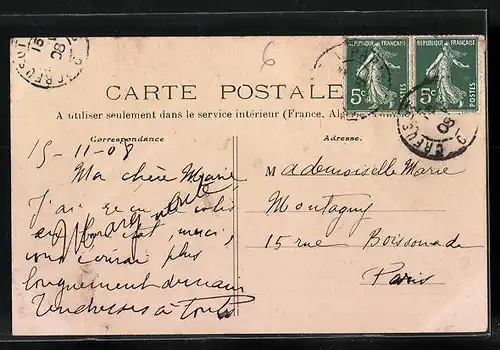 6
REPUBLIQUE FRANÇAISE
5c
POSTES
REPUBLIQUE FRANÇAISE
5c
POSTES
CREUSOT
08
CREUSOT
08
CARTE POSTALE
A utiliser seulement dans le service intérieur (France,
Correspondance
Adresse.
15-11-08
Ma chère
J'ai reçu colis
état merci,
vous écrirai plus
longuement demain
Tendresses à toutes
Mademoiselle Marie
Montagny
15 rue Boissonade
Paris